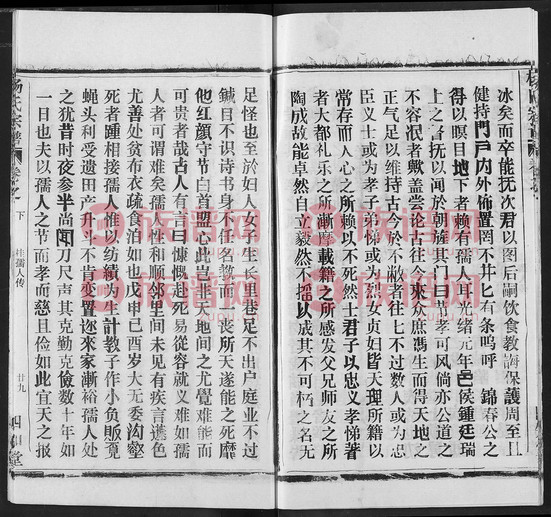 冰矣而卒能抚次君以图后嗣饮食教誨保護周至且
健持門戸内外佈置罔不井匕有条嗚呼　錦春公之
得以暝目地下者賴有孺人耳光緒元年邑侯鍾廷瑞
上之各憲撫以闻於朝旌其門曰节孝可风倘亦公道之
不容泯者歟盖嘗论古往今來众庶馮生而得天地之
正气足以维持古今於不敝者往匕不过数人或为忠
臣义士或为孝子弟悌或为烈女貞妇皆天理所籍以
常存而人心之所賴以不死然士君子以忠义孝悌著
者大都礼乐之所漸摩載籍之所感发父兄师友之所
陶成故能卓然自立毅然不摇以成其不可朽之名无
足怪也至於妇人女子生长里巷足不出户庭业不过
鍼日不识诗书身不任名教而一丧所天遂能之死靡
他红颜守节白首盟心此豈非天地间之尤覺难能而
可贵者哉古人有言曰慷慨赴死易從容就义难如孺
人者可谓难矣孺人性和顺邻里间未见有疾言遽色
尤善处贫布衣疏食泊如也戊申己酉岁大无委沟壑
死者踵相接孺人惟以纺績为生計教子作小负贩覓
蝇头利受遗田产升斗不肯变置迩來家漸裕孺人处
之犹昔时夜参半尚闻刀尺声其克勤克儉数十年如
一日也夫以孺人之节而孝而慈且俭如此宜天之报
楊氏宗譜
卷之
下
桂孺人传
廿九
四知堂
族谱网